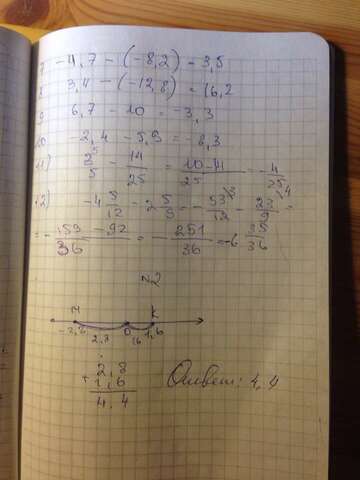 7 -4,7 - (-8,2) = 3,5
8 3,4 - (-12,8) = 16,2
9 6,7 - 10 = -3,3
10 -2,4 - 5,9 = -8,3
11) 2/5 - 14/25 = (10-14)/25 = -4/25
12) -4 5/12 - 2 5/9 = -53/12 - 23/9 =
= (-159 - 92)/36 = -251/36 = -6 35/36
№2
N K
-2,8 0 1,6
2,8
2,8
+ 1,6
4,4
Ответ: 4,4